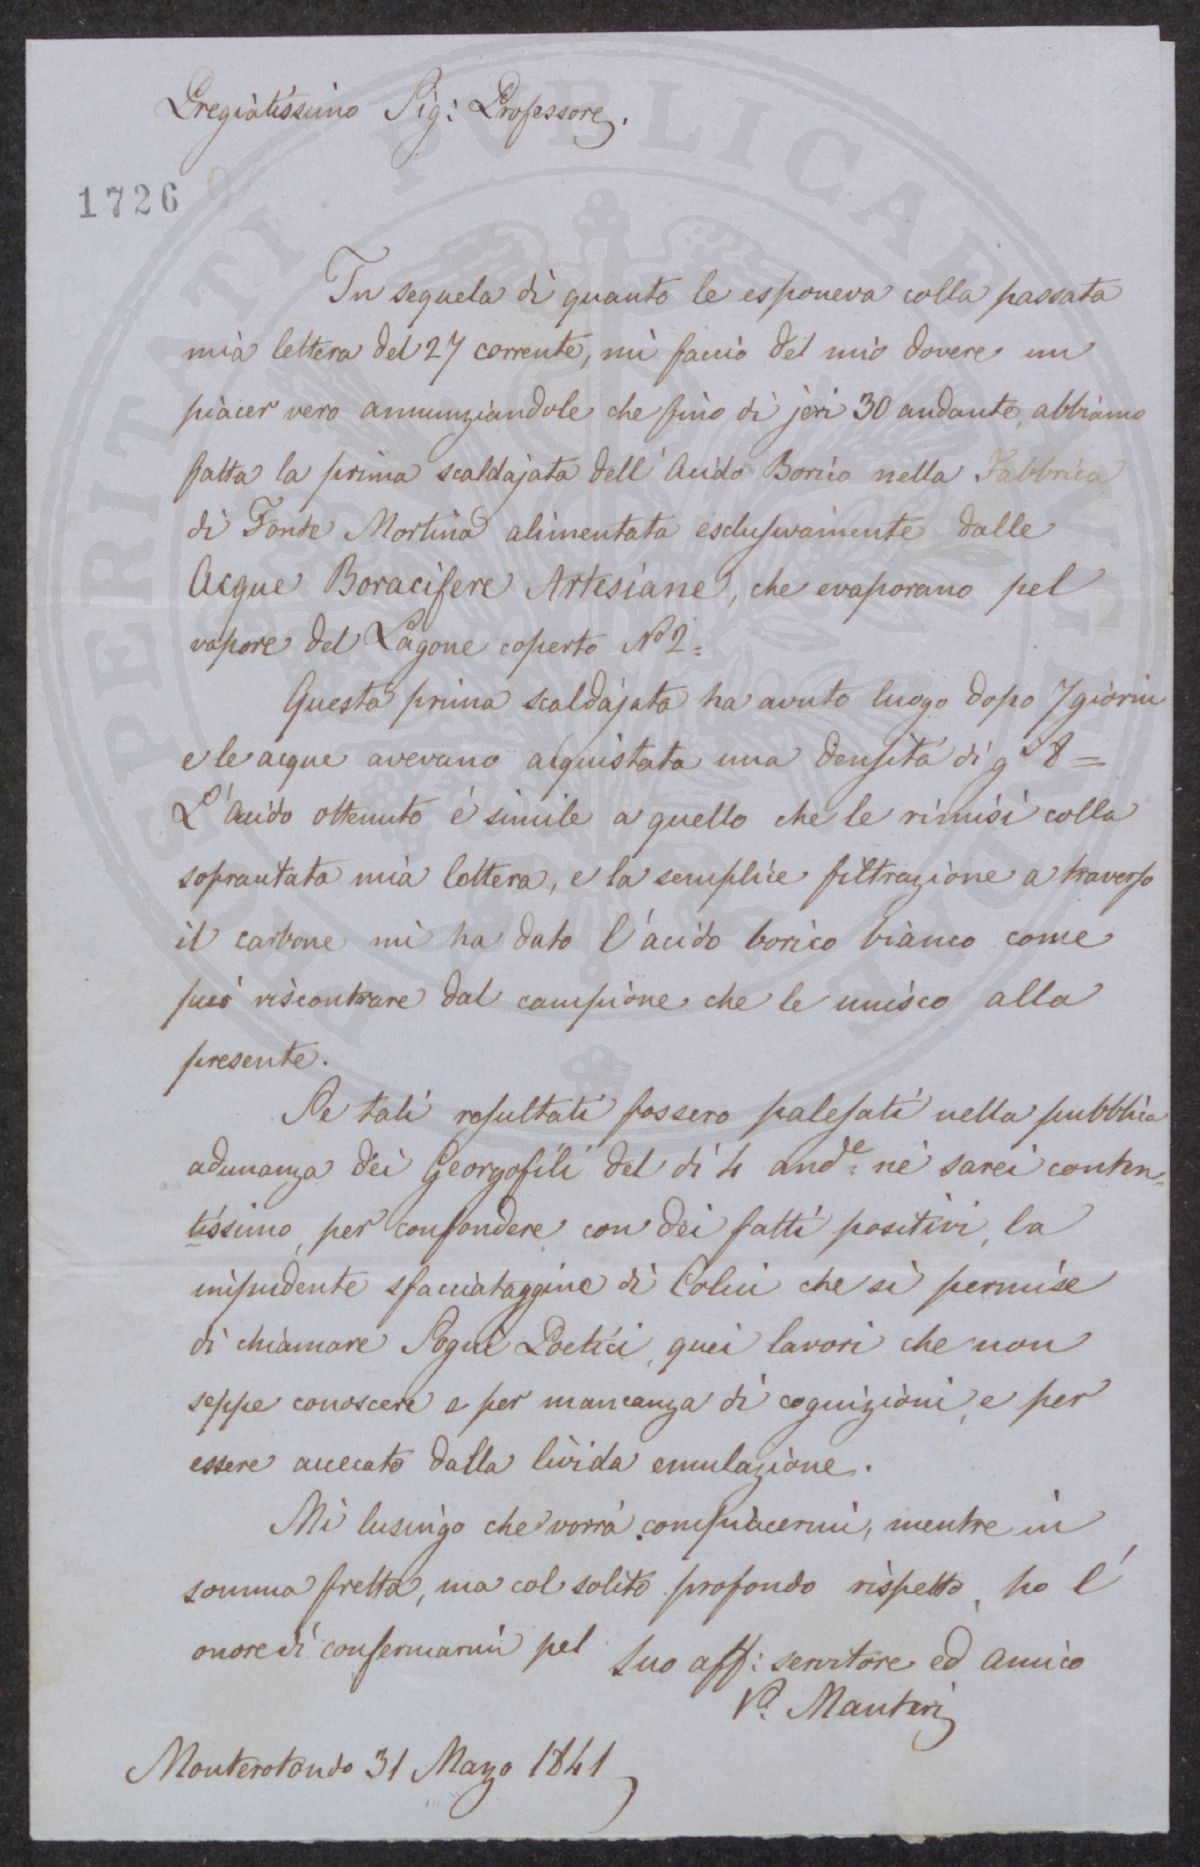 Pregiatissimo Sig: Professore.
1726
In sequela di quanto le esponeva colla passata
mia lettera del 27 corrente, mi faccio del mio dovere un
piacer vero annunziandole che fino di jeri 30 andante, abbiamo
fatta la prima scaldajata dell'Acido Borico nella Fabbrica
di Fonte Mortina alimentata esclusivamente dalle
Acque Boracifere Artesiane, che evaporano pel
vapore del Lagone coperto No 2=
Questa prima scaldajata ha avuto luogo dopo 7 giorni
e le acque avevano acquistata una densità di gdi 8=
L'Acido ottenuto é simile a quello che le rimisi colla
sopracitata mia lettera, e la semplice filtrazione a traverso
il carbone mi ha dato l'acido borico bianco come
può riscontrare dal campione che le unisco alla
presente.
Se tali resultati fossero palesati nella pubblica
adunanza dei Georgofili del di 4 ande: né sarei conten=
tissimo, per confondere con dei fatti positivi, la
impudente sfacciataggine di Colui che si permise
di chiamare Sogni Poetici, quei lavori che non
seppe conoscere e per mancanza di cognizioni, e per
essere accecato dalla livida emulazione.
Mi lusingo che vorrà compiacermi, mentre in
somma fretta, ma col solito profondo rispetto, ho l'
onore di confermarmi pel Suo aff: servitore ed amico
P. Manteri
Monterotondo 31 Marzo 1841
PROSPERITATI PUBLICAE AUGENDAE